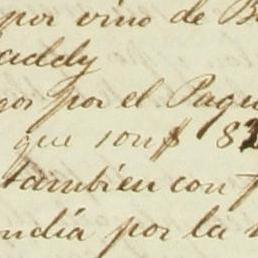 por vino de B
addy
gos por el Paqu
que son $ 83
tambien con
ndia por la